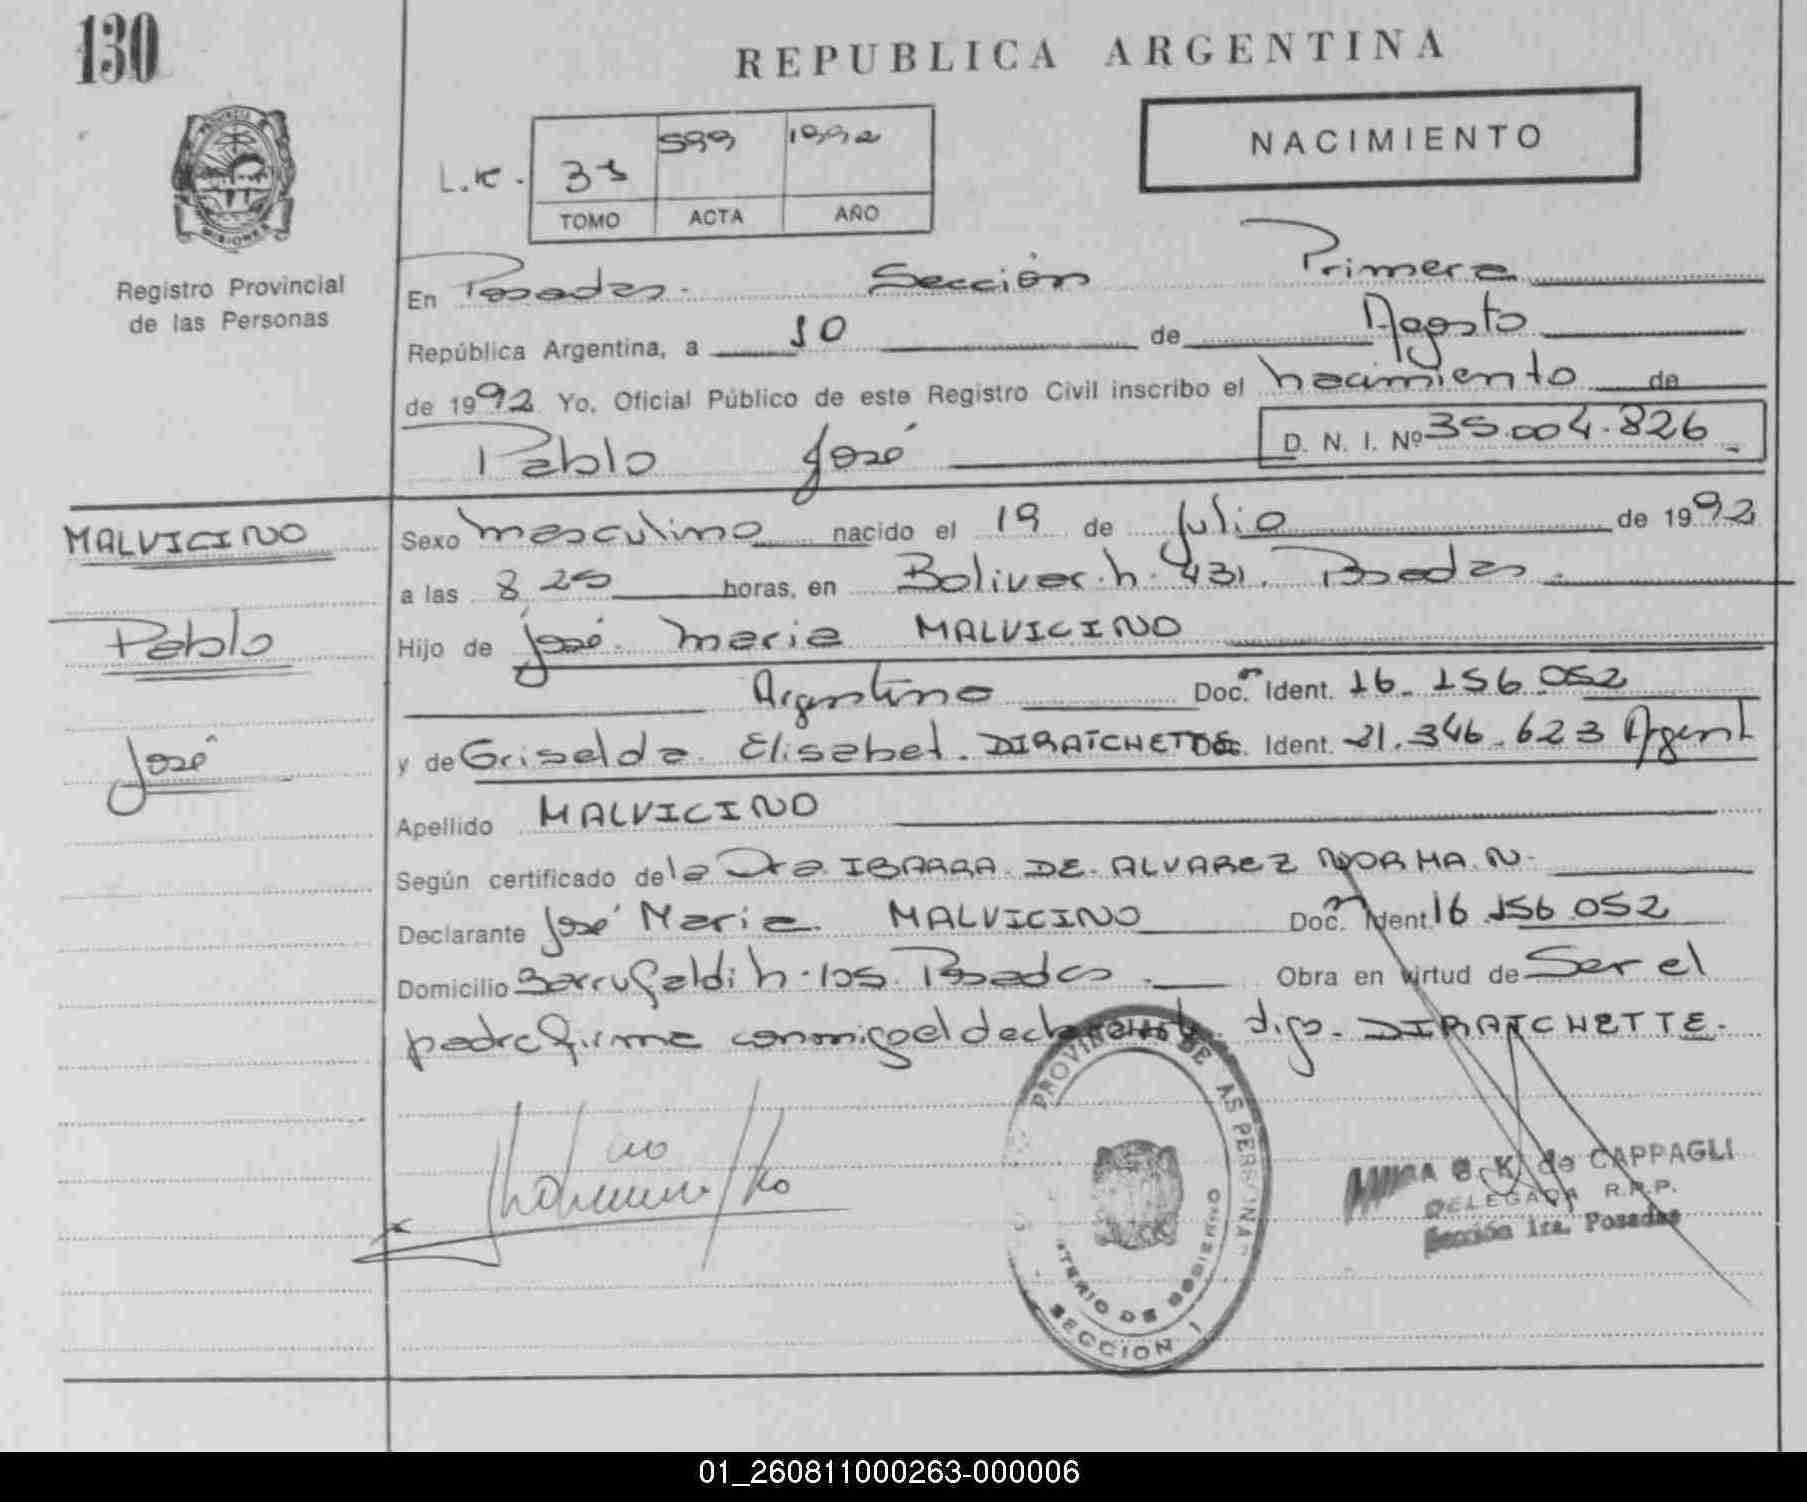 130
REPUBLICA ARGENTINA
NACIMIENTO
PROVINCIA DE
MISIONES
599 1992
L.K. 31
TOMO ACTA AÑO
Registro Provincial
de las Personas
En Posadas. Sección Primera
República Argentina, a 10 de Agosto
de 1992 Yo, Oficial Público de este Registro Civil inscribo el nacimiento de
Pablo José D. N. I. Nº 35.004.826
MALVICINO
Pablo
José
Sexo masculino nacido el 19 de Julio de 1992
a las 8 25 horas, en Bolivar. h. 431. Posadas.
Hijo de José. Maria MALVICINO
Argentino Doc. Ident. 16. 156.052
y de Griselda. Elisabet. DIRATCHETTE Doc. Ident. 21.346.623 Argent
Apellido MALVICINO
Según certificado de la Dra. IBARRA. DE. ALVAREZ NORMA. N.
Declarante José Maria. MALVICINO Doc. Ident. 16.156.052
Domicilio h. 105. Posadas. Obra en virtud de Ser el
padre firma conmigo el declarante. digo. DIRATCHETTE.
PROVINCIAL DE AS PERSONA
TERIO DE GOBIERNO
SECCION 1
K. de CAPPAGLI
DELEGADA R.P.P.
Sección 1ra. Posadas
01_260811000263-000006